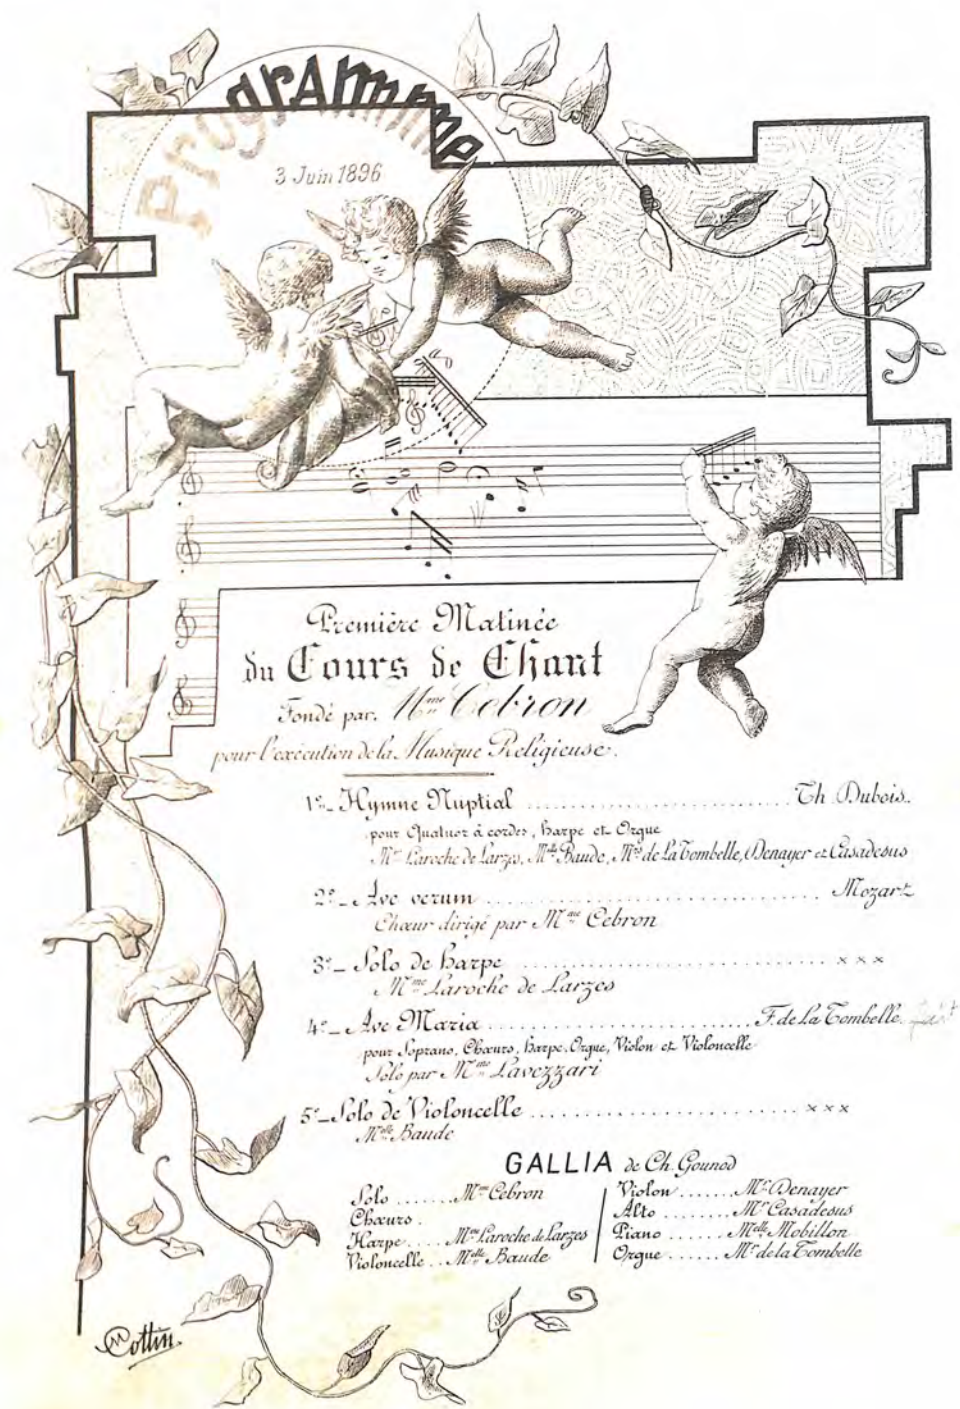 Programme
3 Juin 1896
Première Matinée
du Cours de Chant
Fondé par Mme Cebron
pour l'exécution de la Musique Religieuse.
1o_ Hymne Nuptial ........................ Th. Dubois.
pour Quatuor à cordes, harpe et Orgue
Laroche de Larzes, Melle Baude, Mrs de La Tombelle, Denayer et Casadesus
2o_ Ave verum ........................ Mozart
Chœur dirigé par Mme Cebron
3o_ Solo de harpe ........................ x x x
Mme Laroche de Larzes
4o_ Ave Maria ........................ F. de La Tombelle.
pour Soprano, Chœurs, harpe, Orgue, Violon et Violoncelle
Solo par Mme Lavezzari
5o_ Solo de Violoncelle ........................ x x x
Melle Baude
GALLIA de Ch. Gounod
Solo ....... Mme Cebron
Chœurs.
Harpe .... Mme Laroche de Larzes
Violoncelle .. Melle Baude
Violon ....... Mr Denayer
Alto ........ Mr Casadesus
Piano ...... Melle Mobillon
Orgue ...... Mr de la Tombelle
Cottin